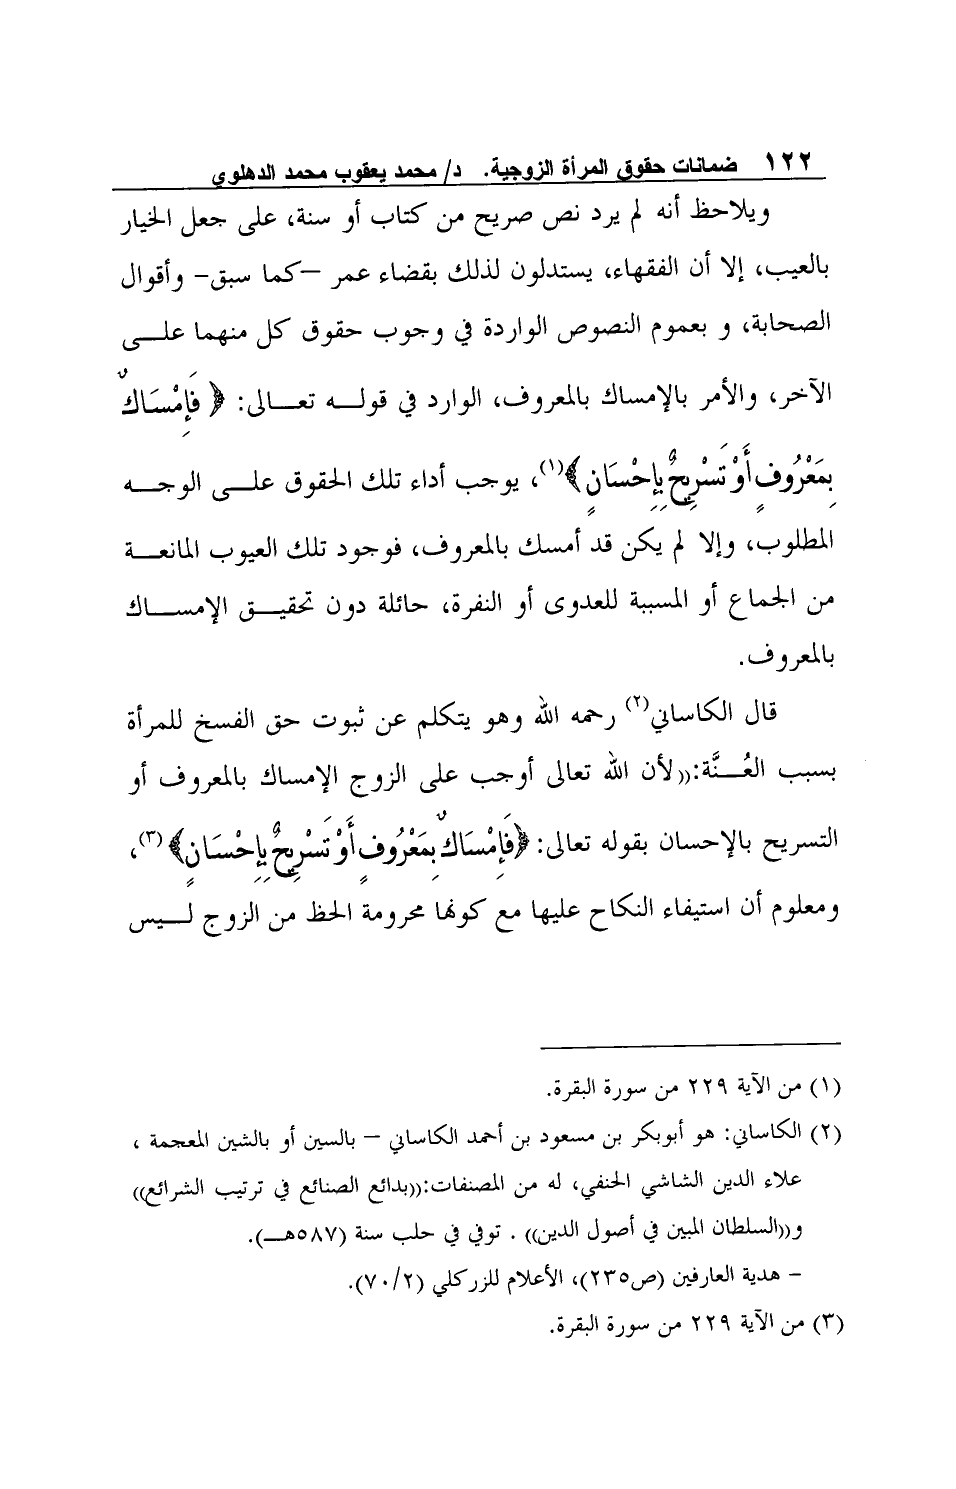 ١٢٢ ضمانات حقوق المرأة الزوجية. د/ محمد يعقوب محمد الدهلوي
ويلاحظ أنه لم يرد نص صريح من كتاب أو سنة، على جعل الخيار
بالعيب، إلا أن الفقهاء، يستدلون لذلك بقضاء عمر –كما سبق– وأقوال
الصحابة، و بعموم النصوص الواردة في وجوب حقوق كل منهما علـــى
الآخر، والأمر بالإمساك بالمعروف، الوارد في قولـــه تعـــالى: ﴿ فَإِمْسَاكٌ
بِمَعْرُوفٍ أَوْ تَسْرِيحٌ بِإِحْسَانٍ ﴾(١)، يوجب أداء تلك الحقوق علـــى الوجـــه
المطلوب، وإلا لم يكن قد أمسك بالمعروف، فوجود تلك العيوب المانعـــة
من الجماع أو المسببة للعدوى أو النفرة، حائلة دون تحقيـــق الإمســـاك
بالمعروف.
قال الكاساني(٢) رحمه الله وهو يتكلم عن ثبوت حق الفسخ للمرأة
بسبب العُـــنَّة:((لأن الله تعالى أوجب على الزوج الإمساك بالمعروف أو
التسريح بالإحسان بقوله تعالى: ﴿فَإِمْسَاكٌ بِمَعْرُوفٍ أَوْ تَسْرِيحٌ بِإِحْسَانٍ﴾(٣)،
ومعلوم أن استيفاء النكاح عليها مع كونها محرومة الحظ من الزوج لـــيس
(١) من الآية ٢٢٩ من سورة البقرة.
(٢) الكاساني: هو أبوبكر بن مسعود بن أحمد الكاساني – بالسين أو بالشين المعجمة ،
علاء الدين الشاشي الحنفي، له من المصنفات:((بدائع الصنائع في ترتيب الشرائع))
و((السلطان المبين في أصول الدين)) . توفي في حلب سنة (٥٨٧هـــ).
– هدية العارفين (ص٢٣٥)، الأعلام للزركلي (٧٠/٢).
(٣) من الآية ٢٢٩ من سورة البقرة.